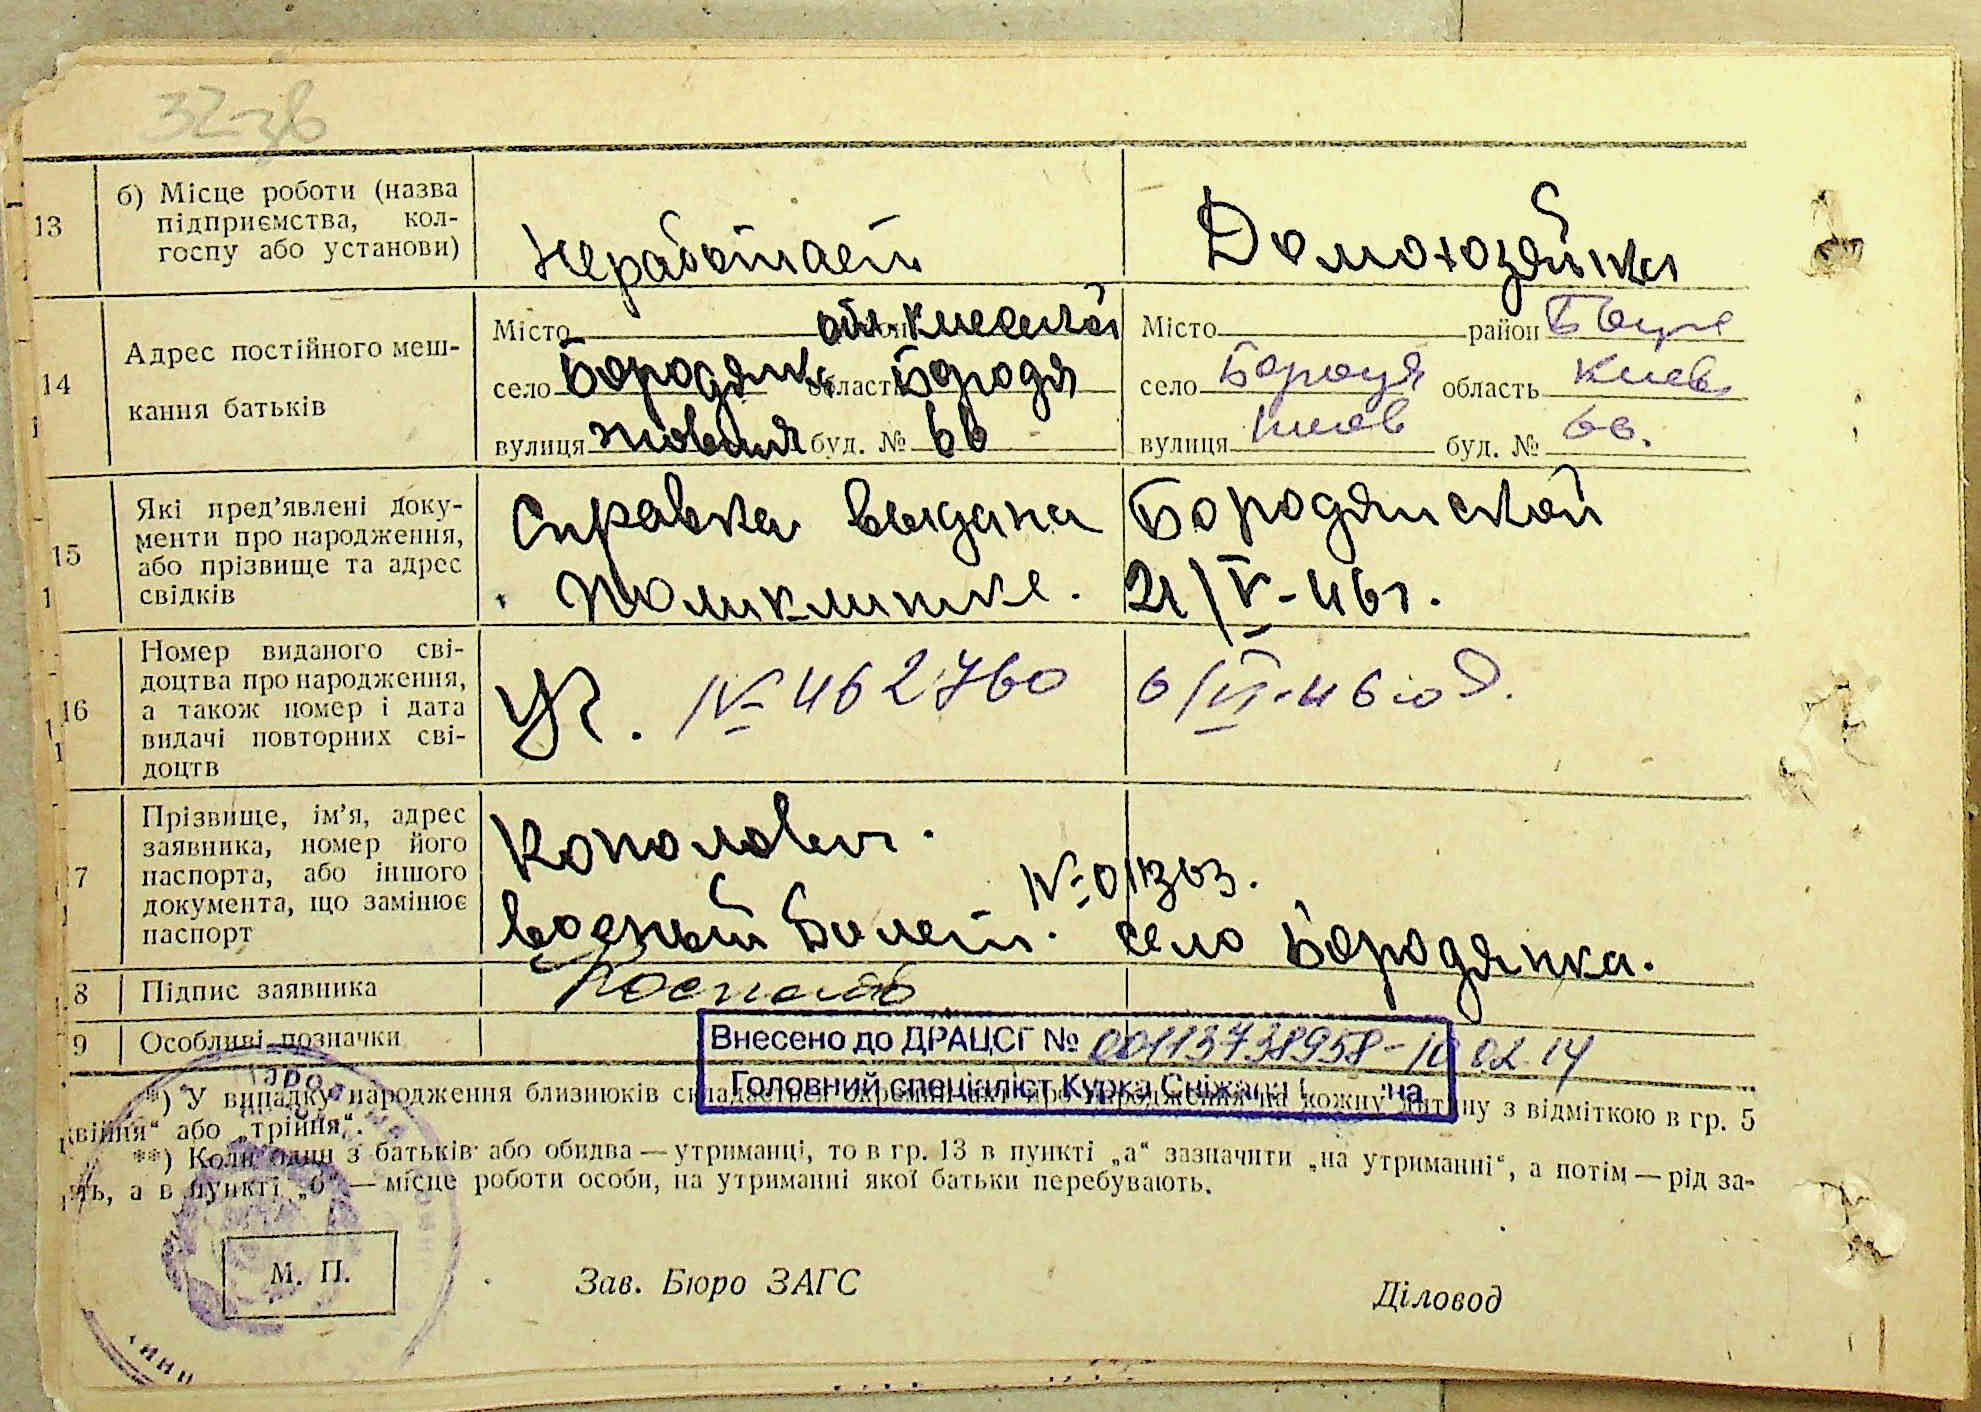 32 зв
13
б) Місце роботи (назва
підприємства, кол-
госпу або установи)
Неработает
Домохозяйка
14
Адрес постійного меш-
кання батьків
Місто
обл. Киевской
село Бородянка область Бородя
вулиця буд. № 66
Місто район
село область Киев
вулиця Киев буд. № 66.
15
Які пред'явлені доку-
менти про народження,
або прізвище та адрес
свідків
Справка выдана Бородянской
Поликлинике. 21/V-46г.
16
Номер виданого сві-
доцтва про народження,
а також номер і дата
видачі повторних сві-
доцтв
№ 462760 6/VI-46
17
Прізвище, ім'я, адрес
заявника, номер його
паспорта, або іншого
документа, що замінює
паспорт
военый билет. село Бородянка.
8
Підпис заявника
9
Особливі позначки
Внесено до ДРАЦСГ № 00113738958-10.02.14
Головний спеціаліст Курка Сніжана
*) У випадку народження близнюків складається окремий акт про народження на кожну дитину з відміткою в гр. 5
„двійня“ або „трійня“.
**) Коли один з батьків або обидва — утриманці, то в гр. 13 в пункті „а“ зазначити „на утриманні“, а потім — рід за-
нять, а в пункті „б“ — місце роботи особи, на утриманні якої батьки перебувають.
М. П.
Зав. Бюро ЗАГС
Діловод